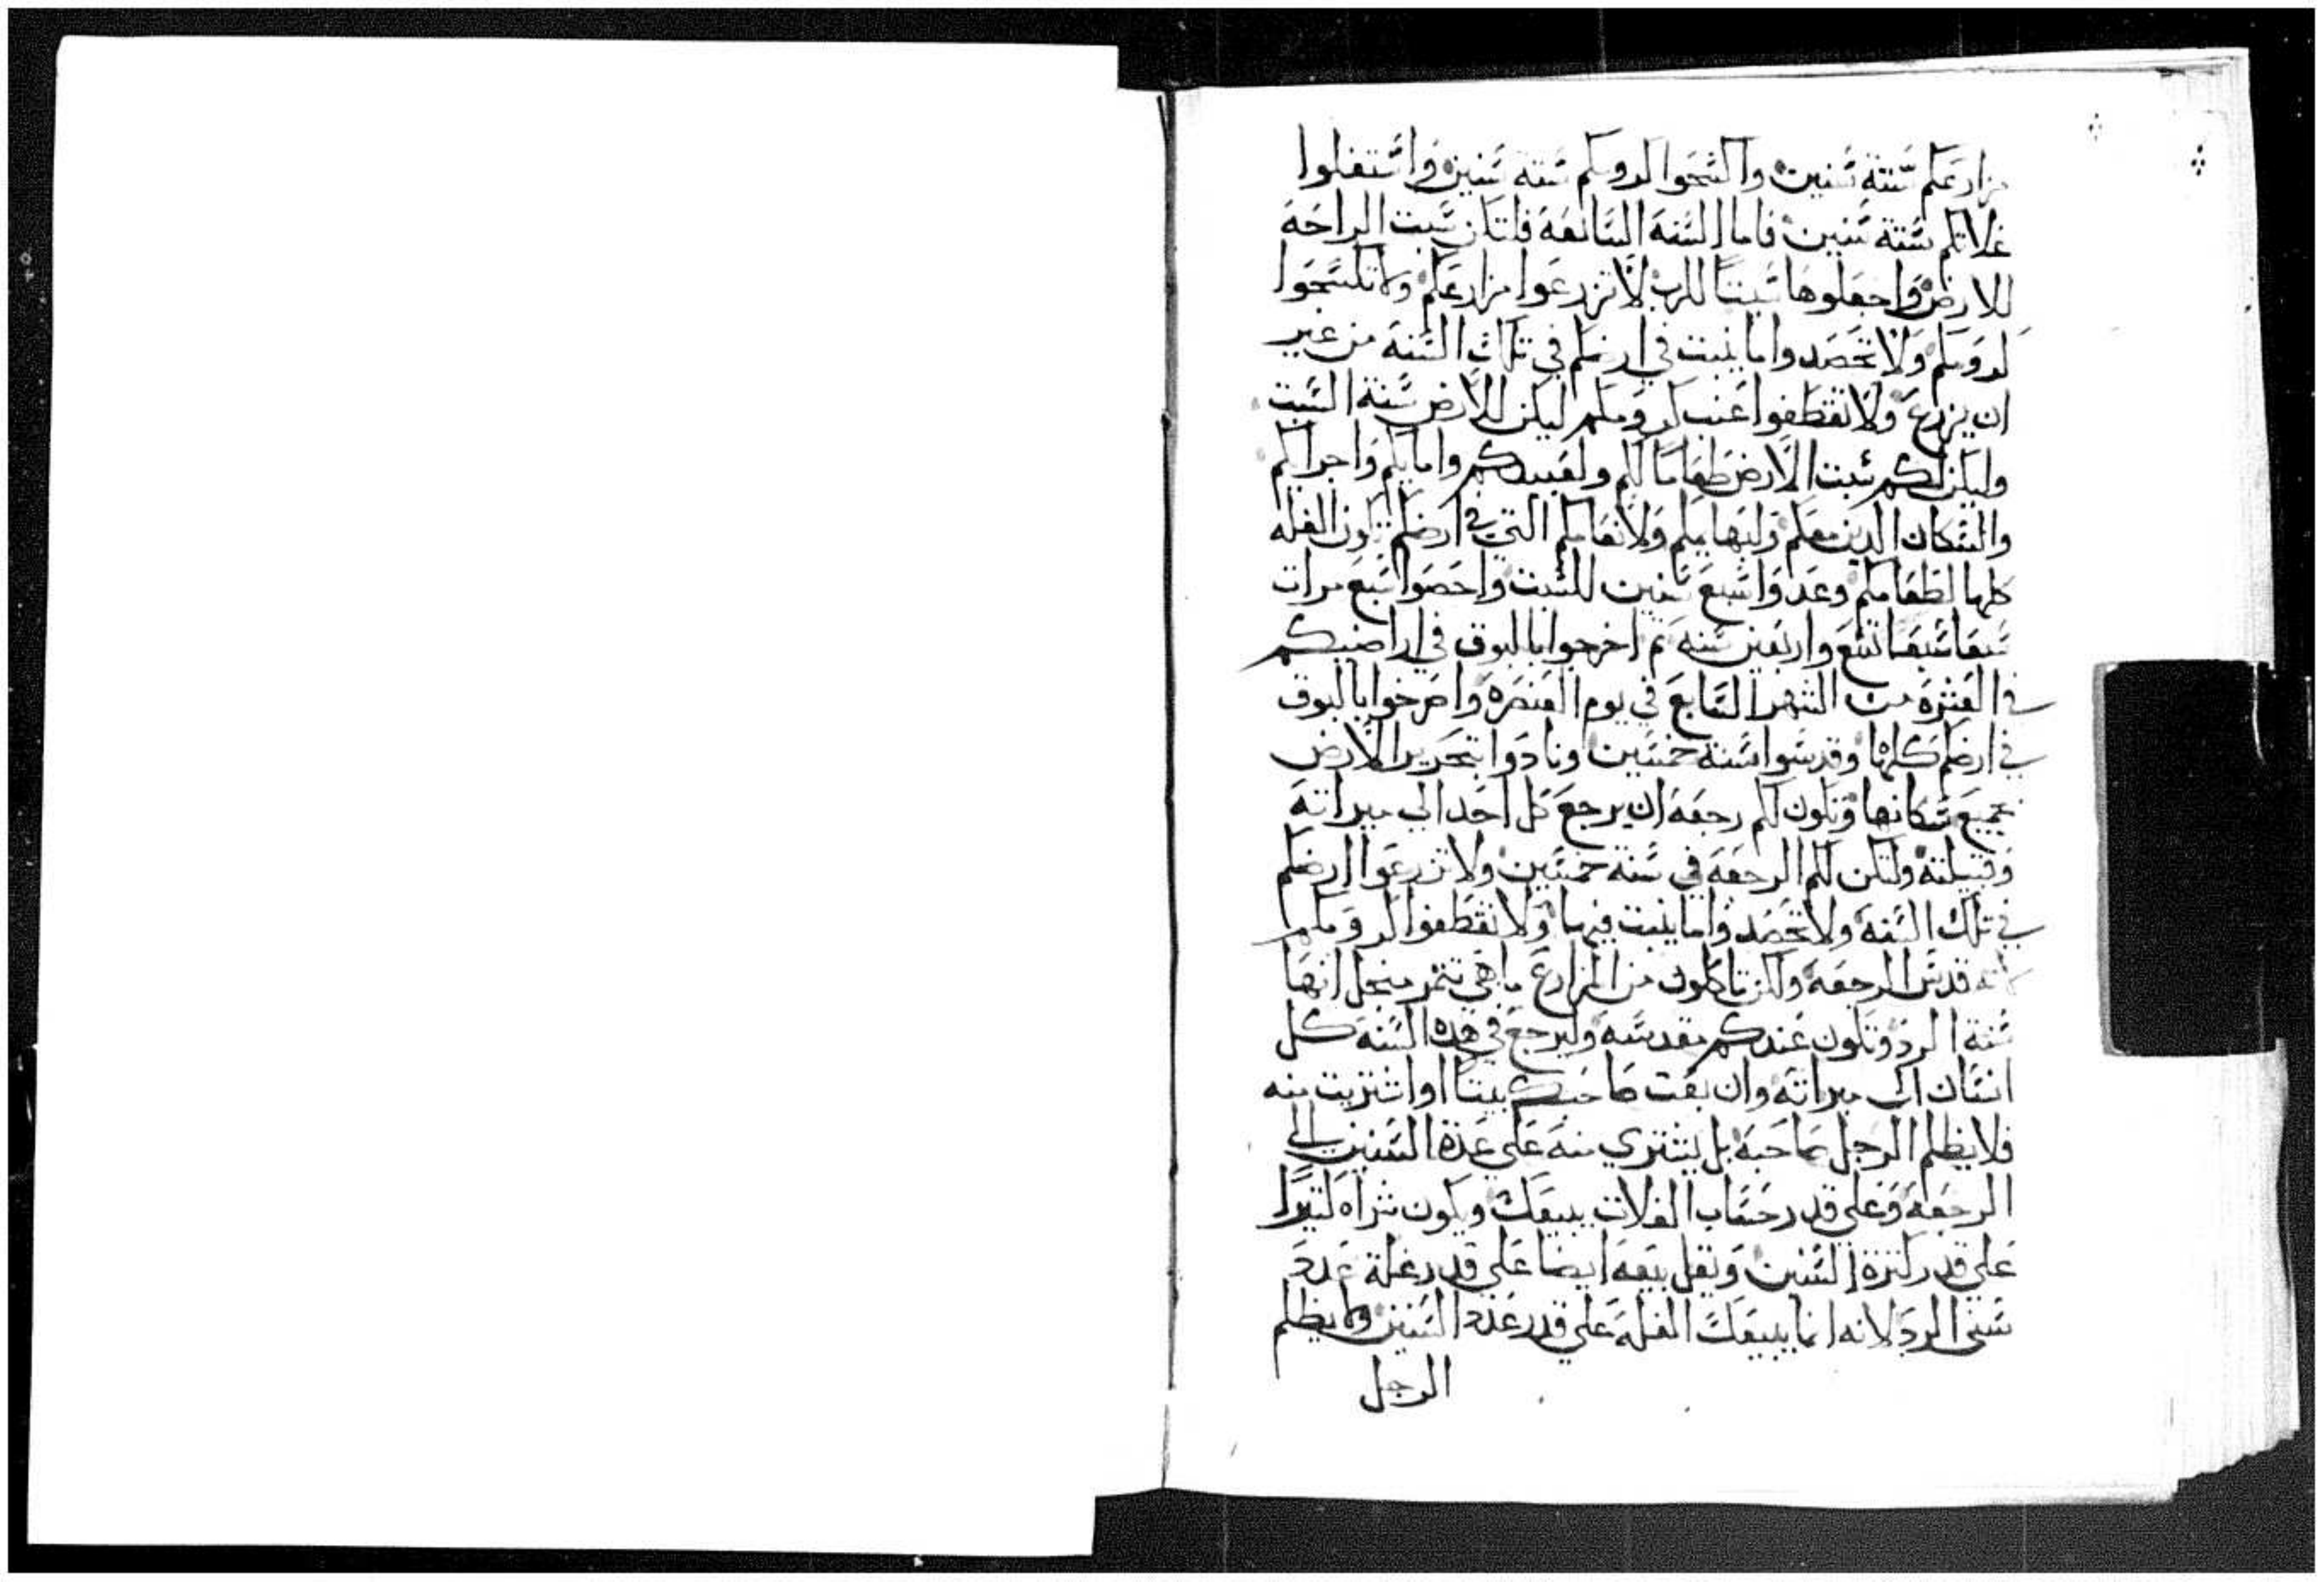 مزارعكم ستة سنين واكسحوا كرومكم ستة سنين واستغلوا
غلاتكم ستة سنين فاما السنة السابعة فلتكن سبت الراحة
للارض واجعلوها سبتا للرب لا تزرعوا مزارعكم ولا تكسحوا
كرومكم ولا تحصدوا ما ينبت في ارضكم في تلك السنة من غير
ان يزرع ولا تقطفوا عنب كرومكم ليكن للارض سنة السبت
وليكن لكم سبت الارض طعاما لكم ولعبيدكم وامايكم واجرايكم
والسكان الدين معكم ولبهايمكم ولانعامكم التي في ارضكم تكون الغله
كلها لطعامكم وعدوا سبع سنين للسبت واحصوا سبع مرات
سبعا سبعا تسع واربعين سنه تم اخرجوا بالبوق في اراضيكم
في العشرة من الشهر السابع في يوم العنصرة واصرخوا بالبوق
في ارضكم كلها وقدسوا سنة خمسين ونادوا بتحرير الارض
بجميع سكانها وتكون لكم رجعة ان يرجع كل احد الي ميراته
وقبيلته ولتكن لكم الرجعة في سنة خمسين ولا تزرعوا ارضكم
في تلك السنة ولا تحصدوا ما ينبت فيها ولا تقطفوا كرومكم
لانه قدس الرجعة ولكن تاكلون من المزارع ما هي تثمر من اجل انها
سنة الرد وتكون عندكم مقدسه وليرجع في هده السنة كل
انسان الي ميراته وان بعت صاحبك بيتا او اشتريت منه
فلا يظلم الرجل صاحبه بل يشتري منه علي عدة السنين الي
الرجعة وعلي قدر حساب الغلات يبيعك ويكون شراه كثيرا
علي قدر كثرة السنين ويقل بيعه ايضا علي قدر غلة عدد
سني الرد لانه انما يبيعك الغلة علي قدر عدد السنين ولا يظلم
الرجل